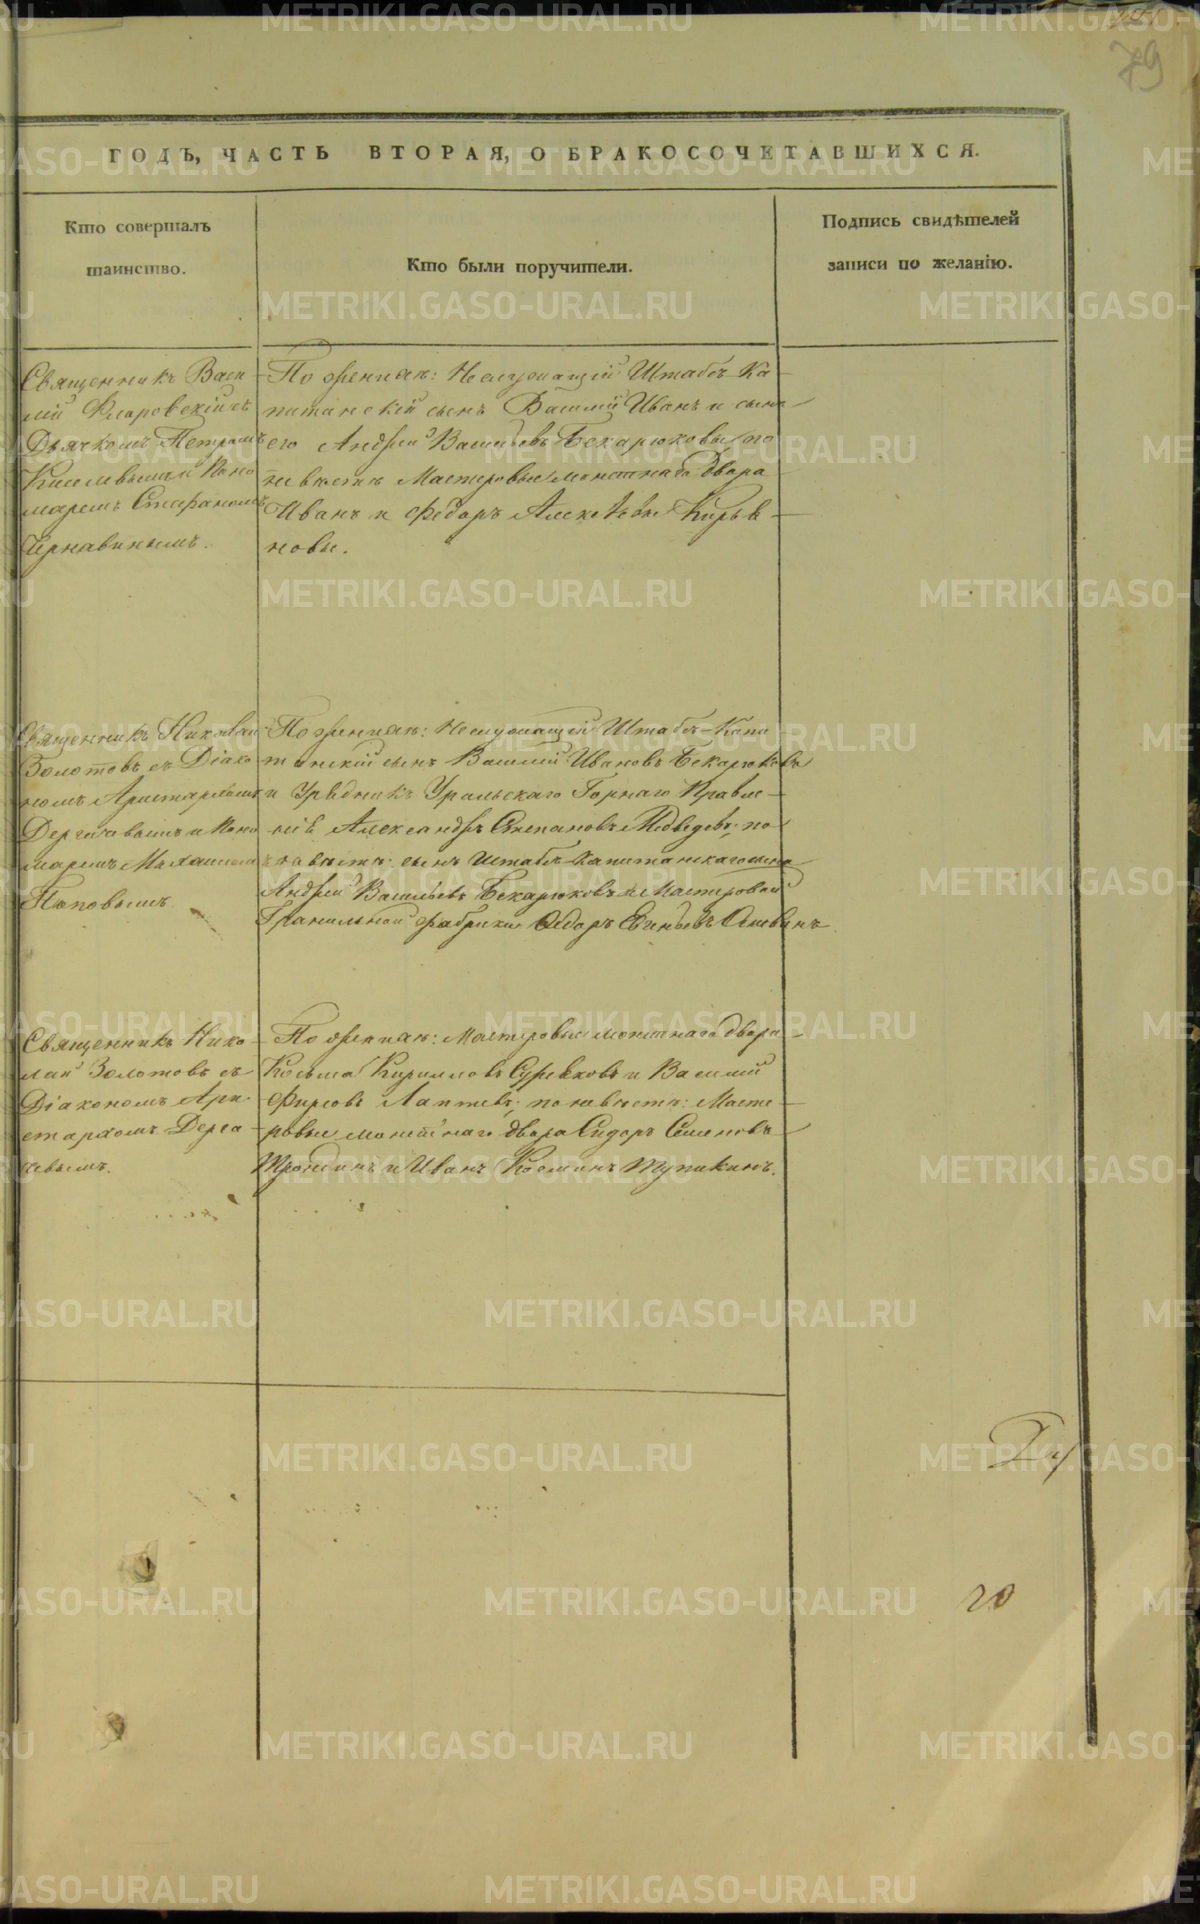 79
ГОДЪ, ЧАСТЬ ВТОРАЯ, О БРАКОСОЧЕТАВШИХСЯ.
Кто совершалъ
таинство.
Кто были поручители.
Подпись свидѣтелей
записи по желанію.
Священникъ Васи-
лій Флоровскій съ
Дьячкомъ Петромъ
и Поно
маремъ Стефаномъ
Чернавинымъ.
По женихѣ: Неслужащій Штабсъ Ка-
питанскій сынъ Василій Иванъ и сынъ
его Андрей Васильевъ Бекарюковы, по
невѣстѣ Мастеровые монетнаго двора
Иванъ и Федоръ Алексѣевы Кирья-
новы.
Священникъ Николай
Золотовъ съ Діако
номъ Аристархомъ
Дергачевымъ и Поно
маремъ Михаиломъ
Поповымъ
По женихѣ: Неслужащій Штабсъ-Капи
танскій сынъ Василій Ивановъ Бекарюковъ
и Урядникъ Уральскаго Горнаго Правле-
нія Александръ Степановъ Медведевъ; по
невѣстѣ: сынъ Штабсъ Капитанскаго сына
Андрей Васильевъ Бекарюковъ и Мастеровой
Гранильной фабрики Федоръ
Священникъ Нико-
лай Золотовъ съ
Діакономъ Ари-
стархомъ Дерга-
чевымъ.
По женихѣ: Мастеровые монетнаго двора
Козьма Кирилловъ и Василій
Фирсовъ Лаптевъ; по невѣстѣ: Масте-
ровые монетнаго двора Сидоръ Семеновъ
и Иванъ Козминъ Тупикинъ.
20
METRIKI.GASO-URAL.RU